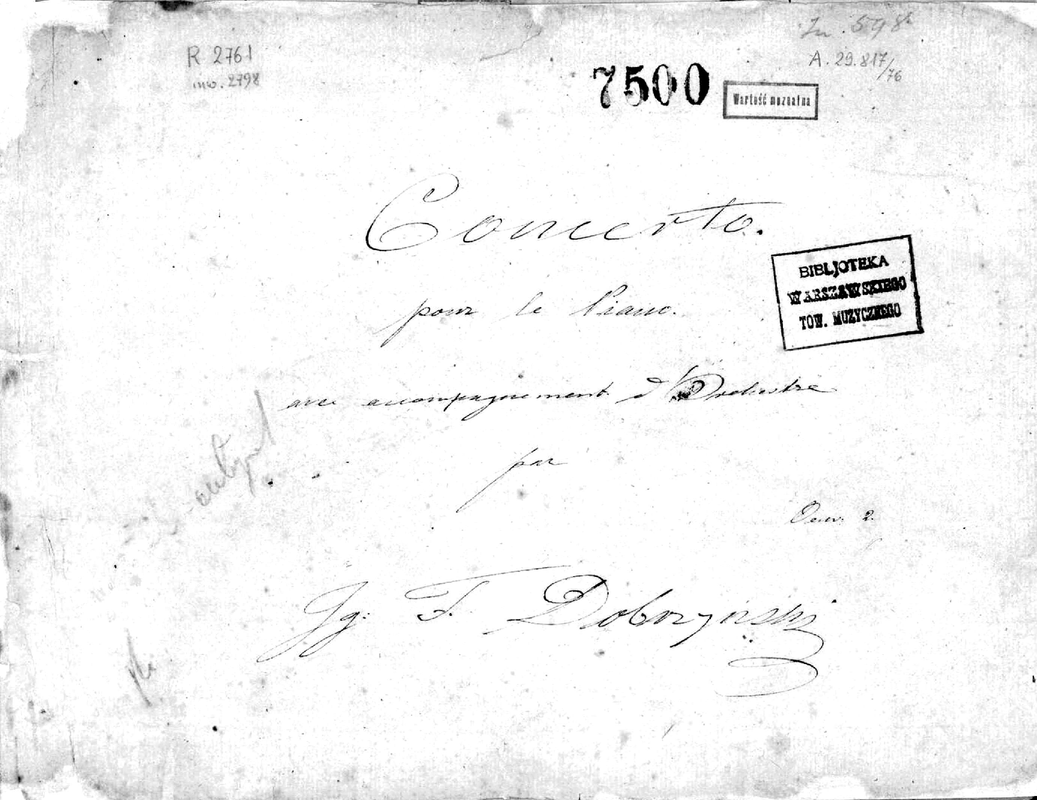 R 2761
inw. 2798
7500
Wartość muzealna
A. 29.817/76
Concerto.
pour le Piano.
avec accompagnement d'Orchestre
par
Oeuv. 2.
Ig: F. Dobrzynski
BIBLJOTEKA
WARSZAWSKIEGO
TOW. MUZYCZNEGO